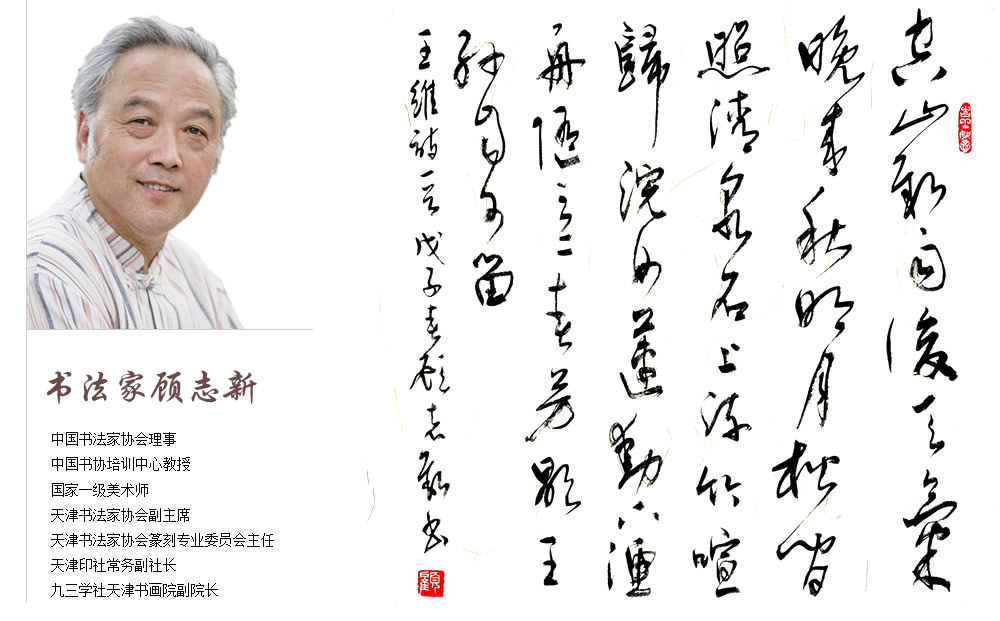 书法家顾志新
中国书法家协会理事
中国书协培训中心教授
国家一级美术师
天津书法家协会副主席
天津书法家协会篆刻专业委员会主任
天津印社常务副社长
九三学社天津书画院副院长
空山新雨後天氣
晚來秋明月松間
照清泉石上流竹喧
歸浣女蓮動下漁
舟隨意春芳歇王
孫自可留
王維詩一首戊子春顧志新書
顧